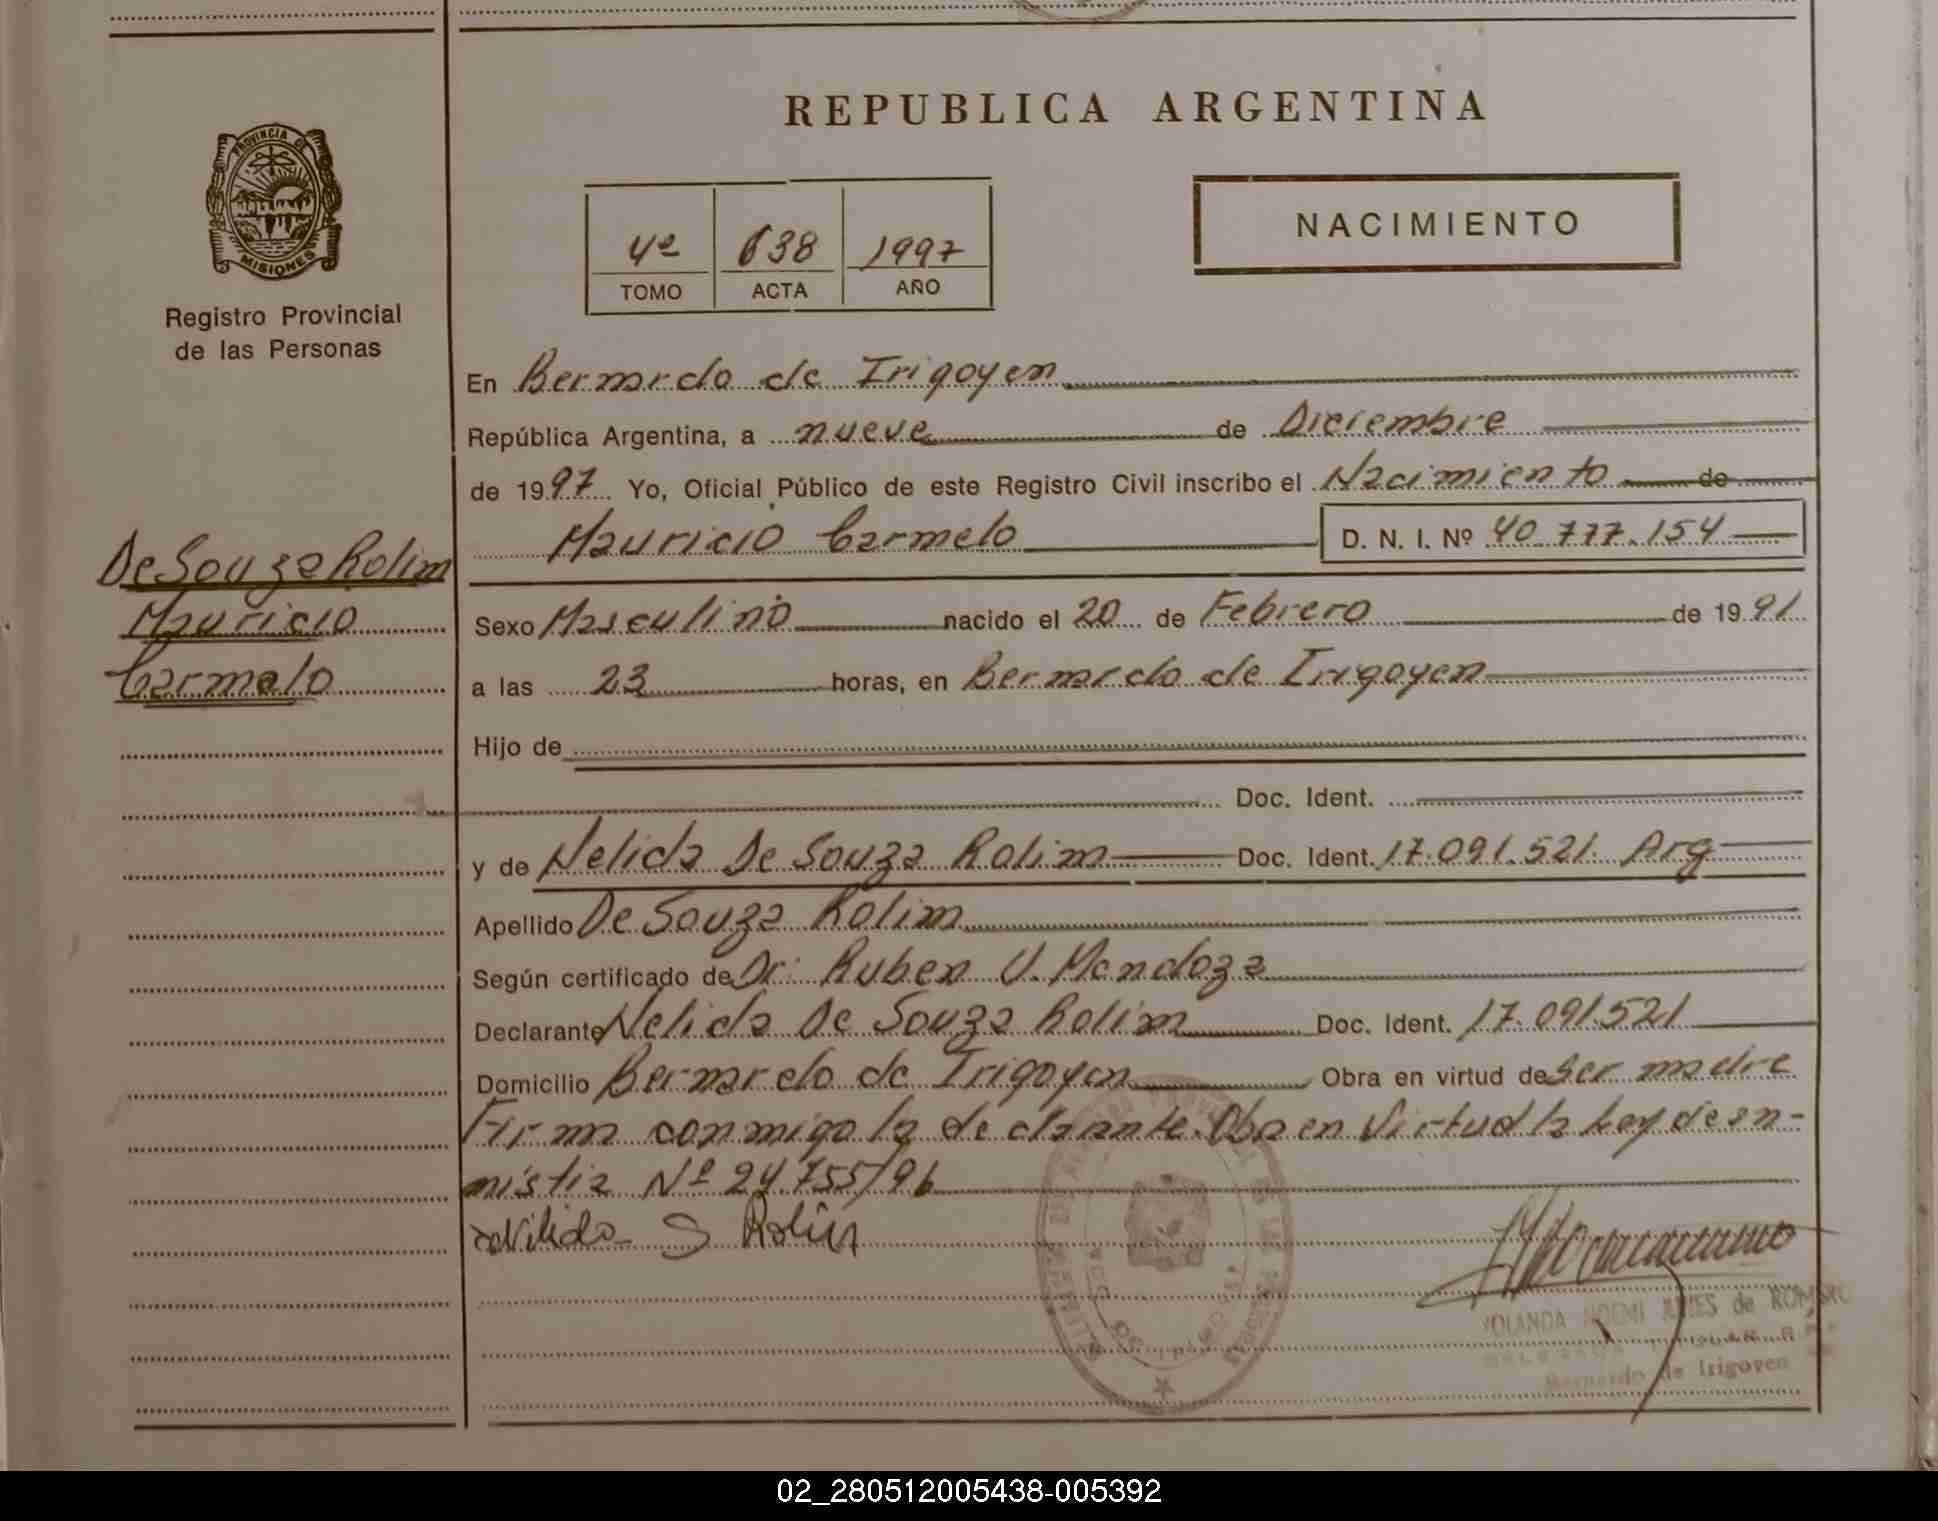 REPUBLICA ARGENTINA
PROVINCIA DE
MISIONES
Registro Provincial
de las Personas
NACIMIENTO
4º 638 1997
TOMO ACTA AÑO
En Bernardo de Irigoyen
República Argentina, a nueve de Diciembre
de 1997 Yo, Oficial Público de este Registro Civil inscribo el Nacimiento de
Mauricio Carmelo D. N. I. Nº 40.777.154
De Souza Rolim
Mauricio
Carmelo
Sexo Masculino nacido el 20 de Febrero de 1991
a las 23 horas, en Bernardo de Irigoyen
Hijo de
Doc. Ident.
y de Nelida De Souza Rolim Doc. Ident. 17.091.521. Arg
Apellido De Souza Rolim
Según certificado de Dr. Ruben V. Mendoza
Declarante Nelida De Souza Rolim Doc. Ident. 17.091521
Domicilio Bernardo de Irigoyen Obra en virtud de Ser madre
Firma conmigo la declarante. Obra en Virtud la Ley de am-
nistia Nº 24.755/96
Nilida S Rolin
YOLANDA NOEMI de ROMERO
Bernardo de Irigoyen
02_280512005438-005392